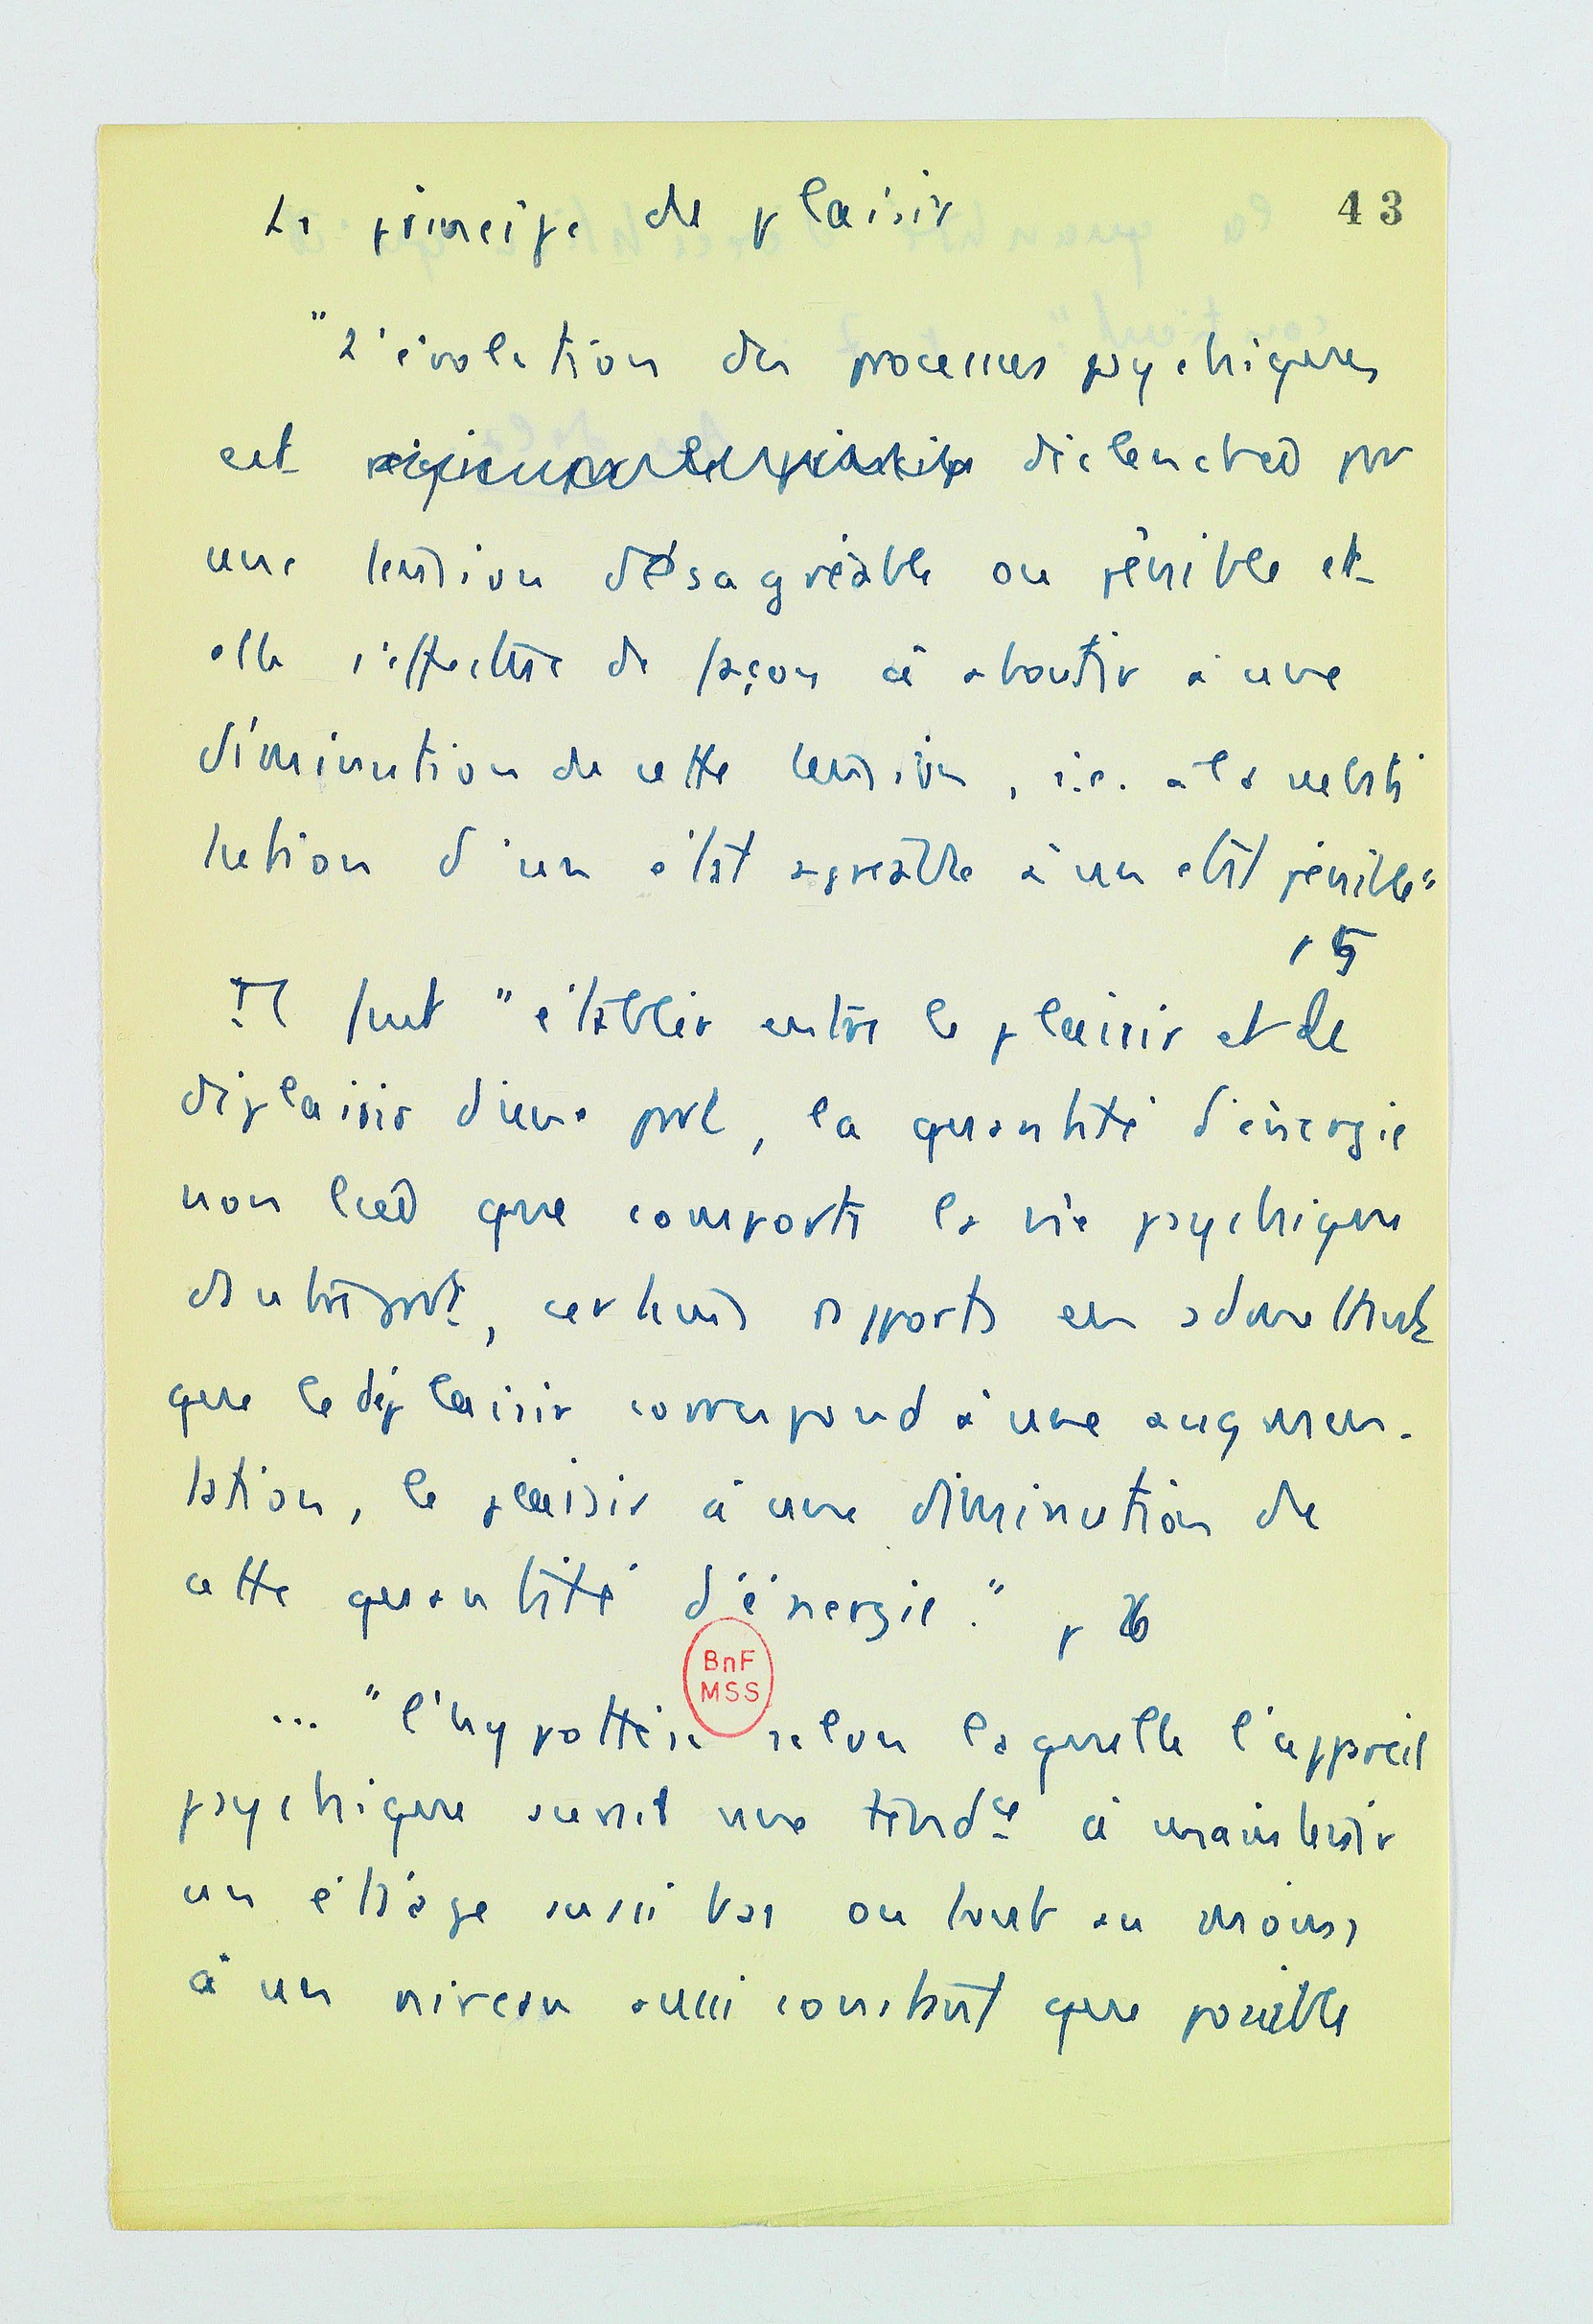 Le principe de plaisir
43
"L'évolution des processus psychiques
est déclenchée par
une tension désagréable ou pénible et
elle s'effectue de façon à aboutir à une
diminution de cette tension, i.e. à la substi
tution d'un état agréable à un état pénible"
p 5
Il faut "établir entre le plaisir et le
déplaisir d'une part, la quantité d'énergie
non liée que comporte la vie psychique
d'autre part, certains rapports en admettant
que le déplaisir correspond à une augmen-
tation, le plaisir à une diminution de
cette quantité d'énergie." p 6
BnF
MSS
... "l'hypothèse selon laquelle l'appareil
psychique aurait une tendce à maintenir
un étiage aussi bas ou tout au moins
à un niveau aussi constant que possible